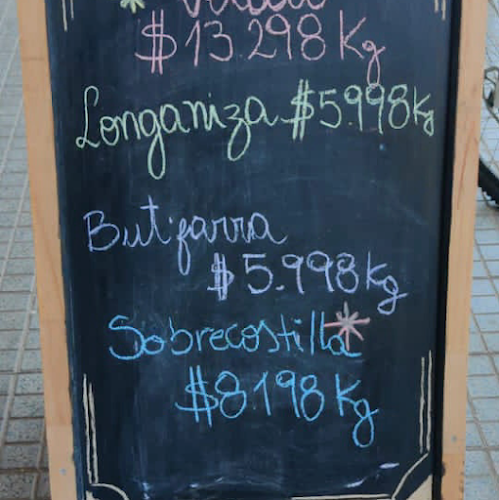 $13.298 Kg
Longaniza $5.998 Kg
Butifarra
$5.998 Kg
Sobrecostilla
$8.198 Kg